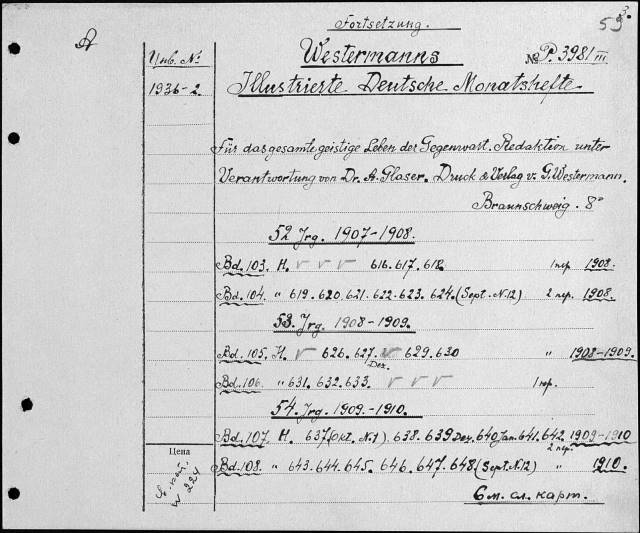 Fortsetzung.
53.
A
Инв. №
1936-2.
Westermanns
№ P. 3981 III
Illustrierte Deutsche Monatshefte.
Für das gesamte geistige Leben der Gegenwart. Redaktion unter
Verantwortung von Dr. A. Glaser. Druck & Verlag v. G. Westermann.
Braunschweig. 8°
52 Jrg. 1907-1908.
Bd. 103. H. v v v 616. 617. 618. 1 пер. 1908.
Bd. 104. " 619. 620. 621. 622. 623. 624. (Sept. N.12) 2 пер. 1908.
53. Jrg. 1908-1909.
Bd. 105. H. v 626. 627. v 629. 630 " 1908-1909.
Dez.
Bd. 106. " 631. 632. 633. v v v 1 пер.
54. Jrg. 1909-1910.
Bd. 107. H. 637 (Okt. N.1). 638. 639 Dez. 640 Jan. 641. 642. 1909-1910
2 пер.
Bd. 108. " 643. 644. 645. 646. 647. 648 (Sept. N.12) " 1910.
См. сл. карт.
Цена
224